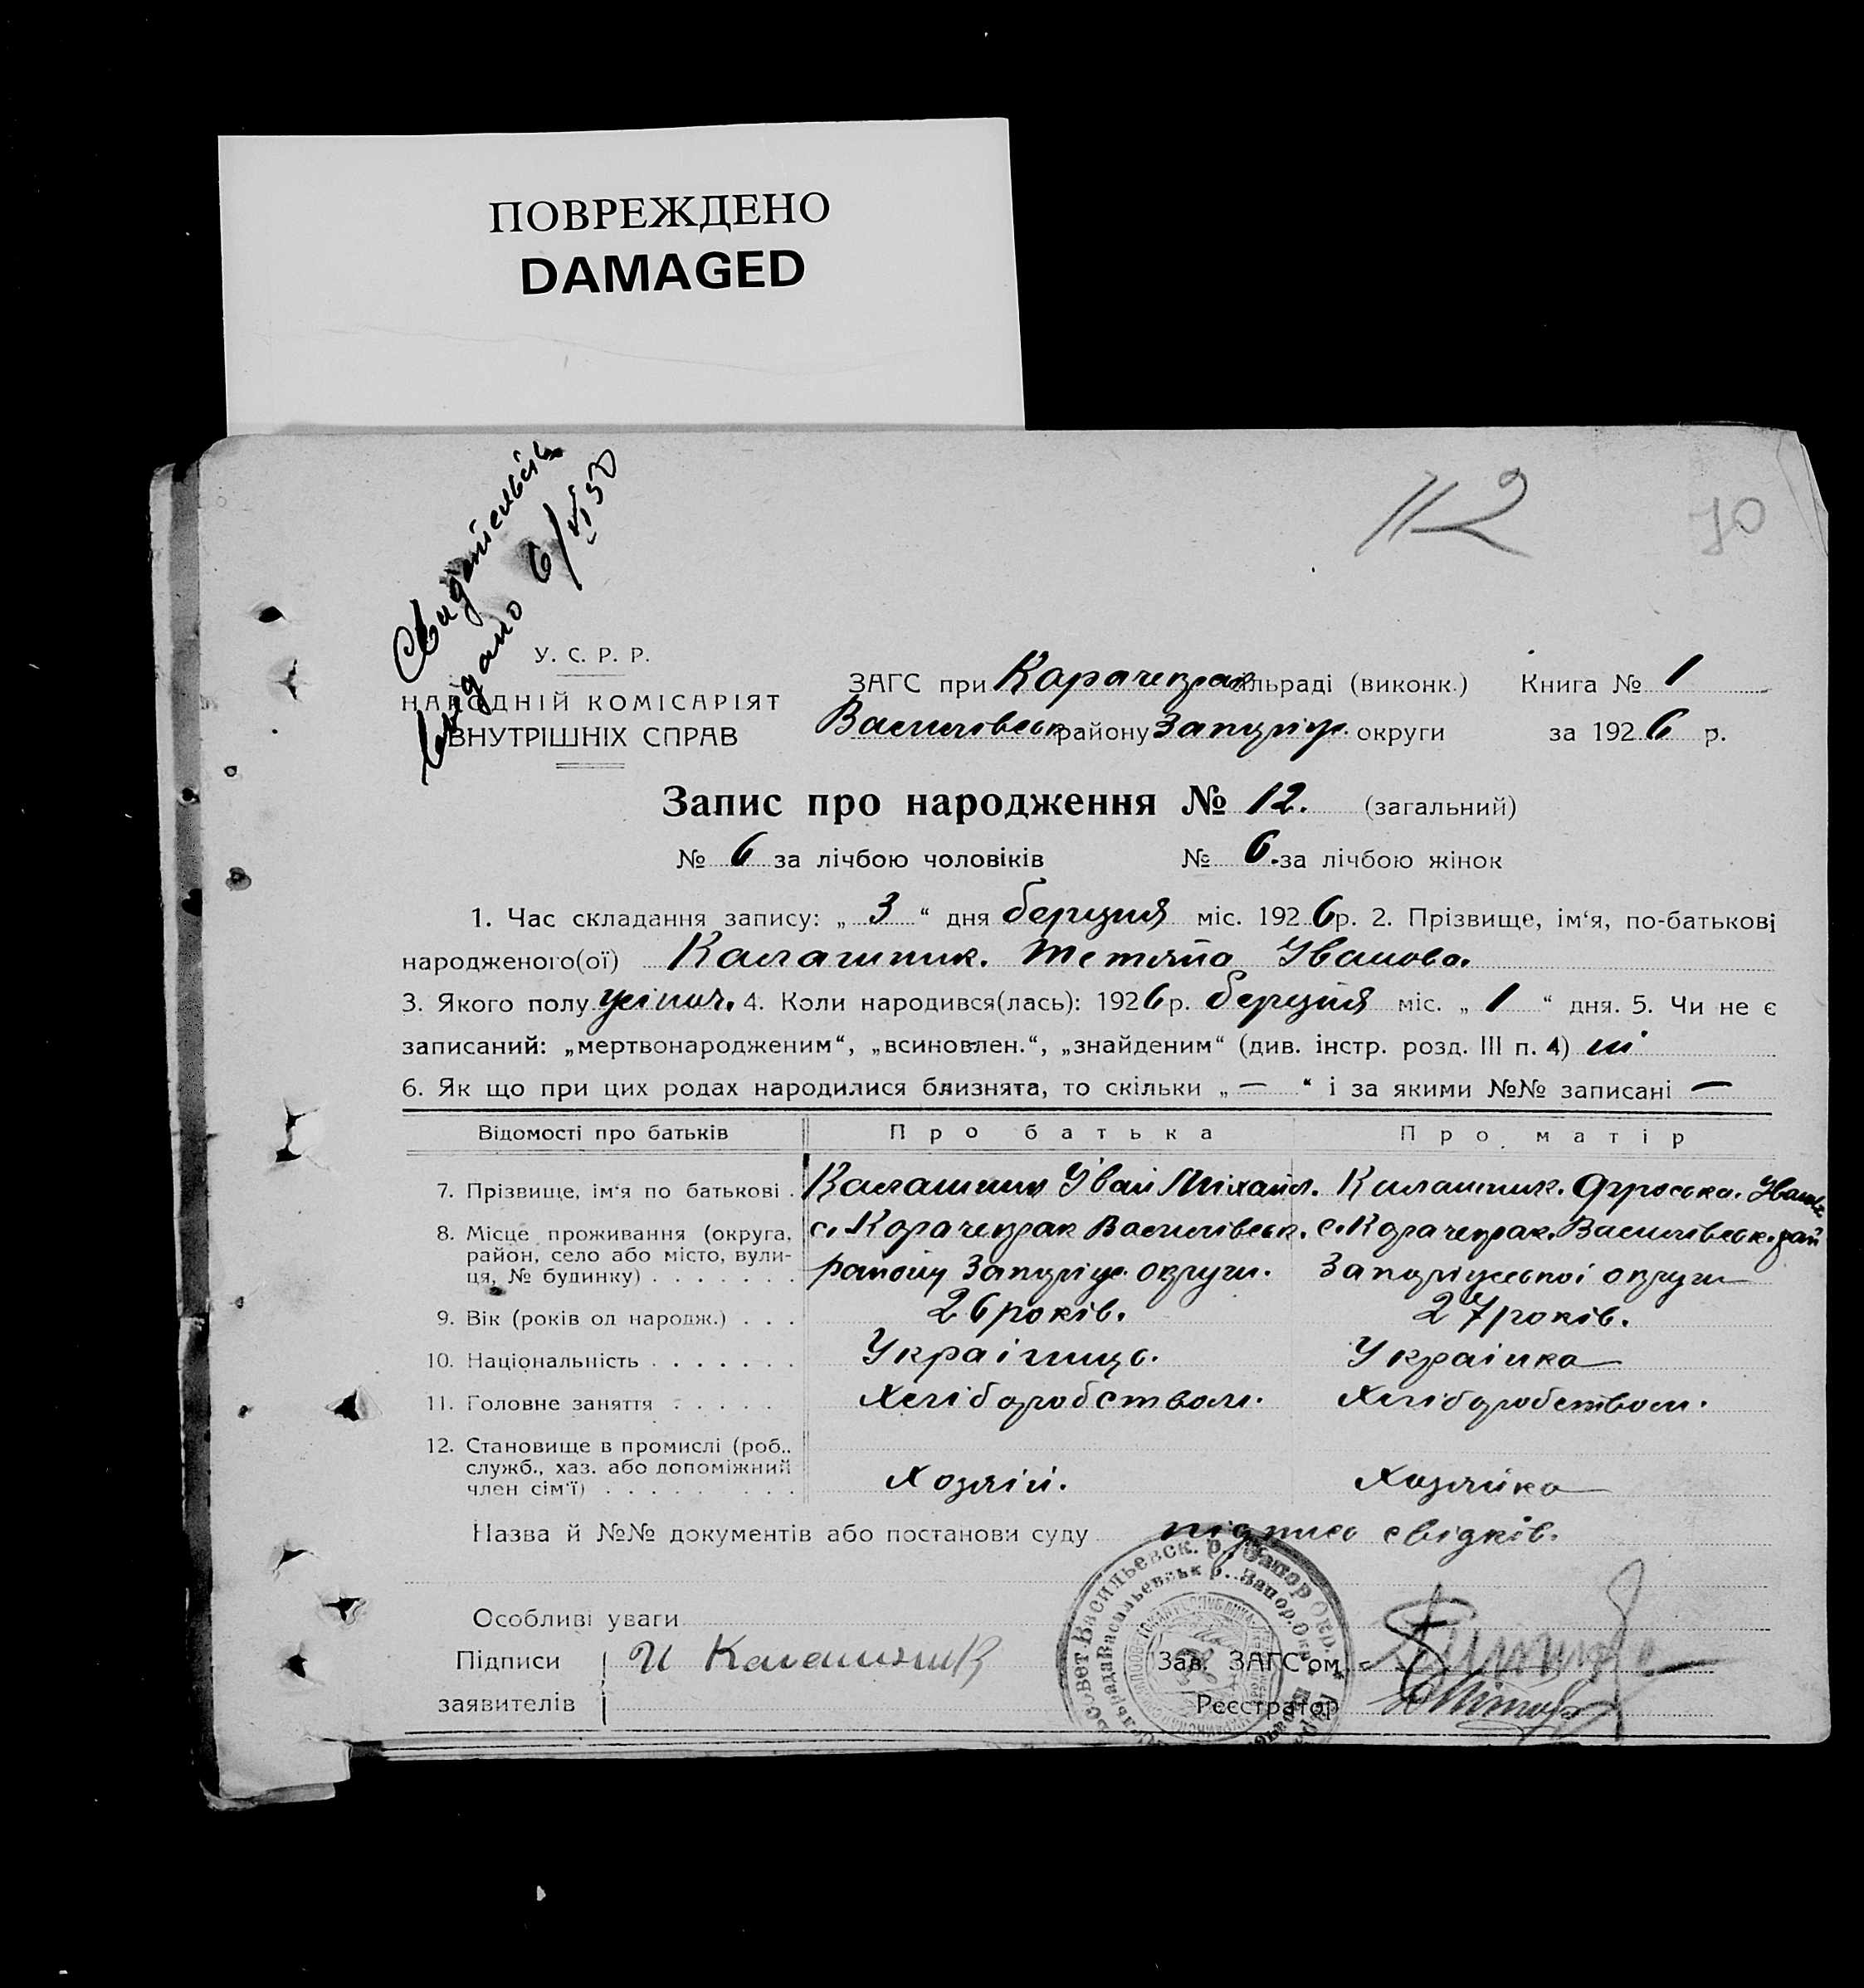 ПОВРЕЖДЕНО
DAMAGED
112
70
Свидетельсть
выдано 6/VI 50
У. С. Р. Р.
НАРОДНІЙ КОМІСАРІЯТ
ВНУТРІШНІХ СПРАВ
ЗАГС при Карачекрак сільраді (виконк.) Книга № 1
Василівськ району Запоріж. округи за 1926 р.
Запис про народження № 12. (загальний)
№ 6 за лічбою чоловіків № 6. за лічбою жінок
1. Час складання запису: „ 3 “ дня березня міс. 1926 р. 2. Прізвище, ім‘я, по-батькові
народженого(ої) Калашник. Тетяна Іванова.
3. Якого полу жіноч. 4. Коли народився(лась): 1926 р. березня міс. „ 1 “ дня. 5. Чи не є
записаний: „мертвонародженим“, „всиновлен.“, „знайденим“ (див. інстр. розд. III п. 4) ні
6. Як що при цих родах народилися близнята, то скільки „ — “ і за якими №№ записані —
Відомості про батьків Про батька Про матір
7. Прізвище, ім‘я по батькові . Калашник Іван Міхайл. Калашник. Фроська. Іван.
8. Місце проживання (округа, с. Карачекрак Василівськ. с. Карачекрак. Василівськ. рай
район, село або місто, вули-
ця, № будинку) . . . . . . . району Запоріж. округи. Запоріжської округи
9. Вік (років од народж.) . . . 26 років. 27 років.
10. Національність . . . . . . . Українць. Українка
11. Головне заняття . . . . . Хліборобством. Хліборобством.
12. Становище в промислі (роб..
служб., хаз. або допоміжний
член сім‘ї) . . . . . . . . . Хозяїн. Хозяйка
Назва й №№ документів або постанови суду підписо свідків.
Особливі уваги
Підписи И Калашник Зав. ЗАГС‘ом
заявителів Реєстратор
Васильевск. р. Запор Окр.
Васильевськ р. Запор. Окр.